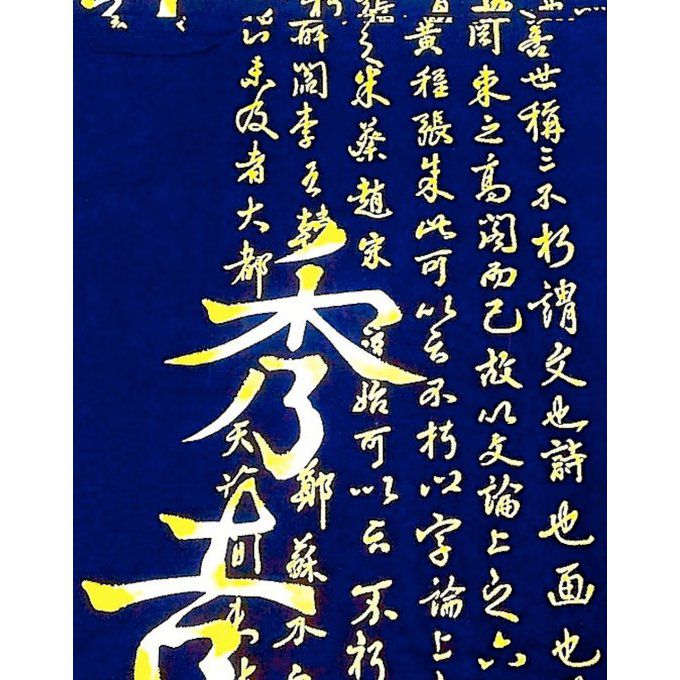 善世稱三不朽謂文也詩也画也
束之高阁而已故以文論上之六
黄程張朱此可以言不朽以字論上
之米蔡趙宋
始可以言不朽
閻李王韓
鄭蘇
未及者大都
天
秀